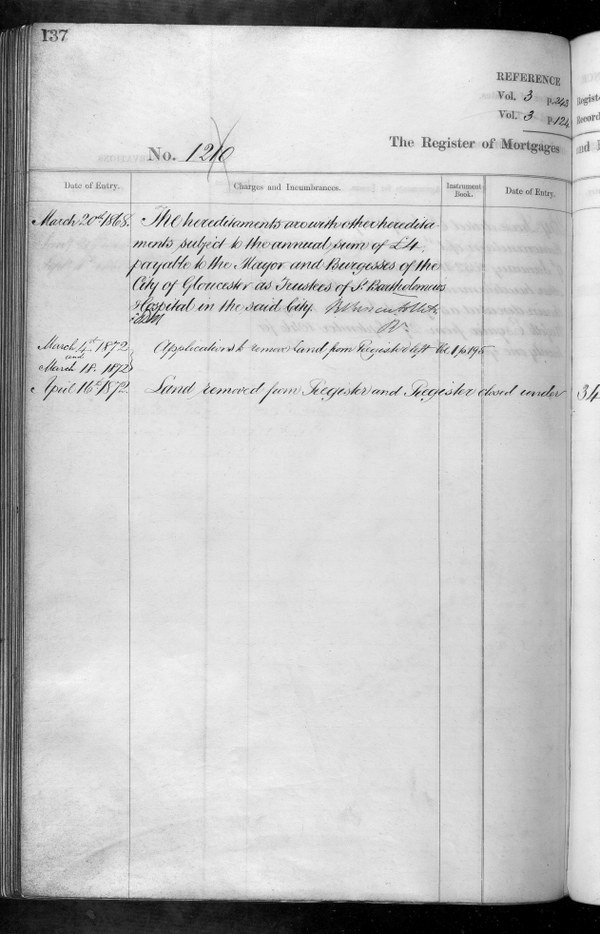 137
REFERENCE
Vol. 3 p. 243
Vol. 3 p. 124
No. 1210
The Register of Mortgages
Date of Entry.
Charges and Incumbrances.
Instrument Book.
Date of Entry.
March 20th 1868.
The hereditaments are with other heredita
ments subject to the annual sum of £4.
payable to the Mayor and Burgesses of the
City of Gloucester as Trustees of St. Bartholomews
Hospital in the said City.
March 4th 1872
and
March 18. 1872
Applications to remove Land from Register left Vol 1 p 195
April 16th 1872.
Land removed from Register and Register closed under
34
Registe
Record
and I